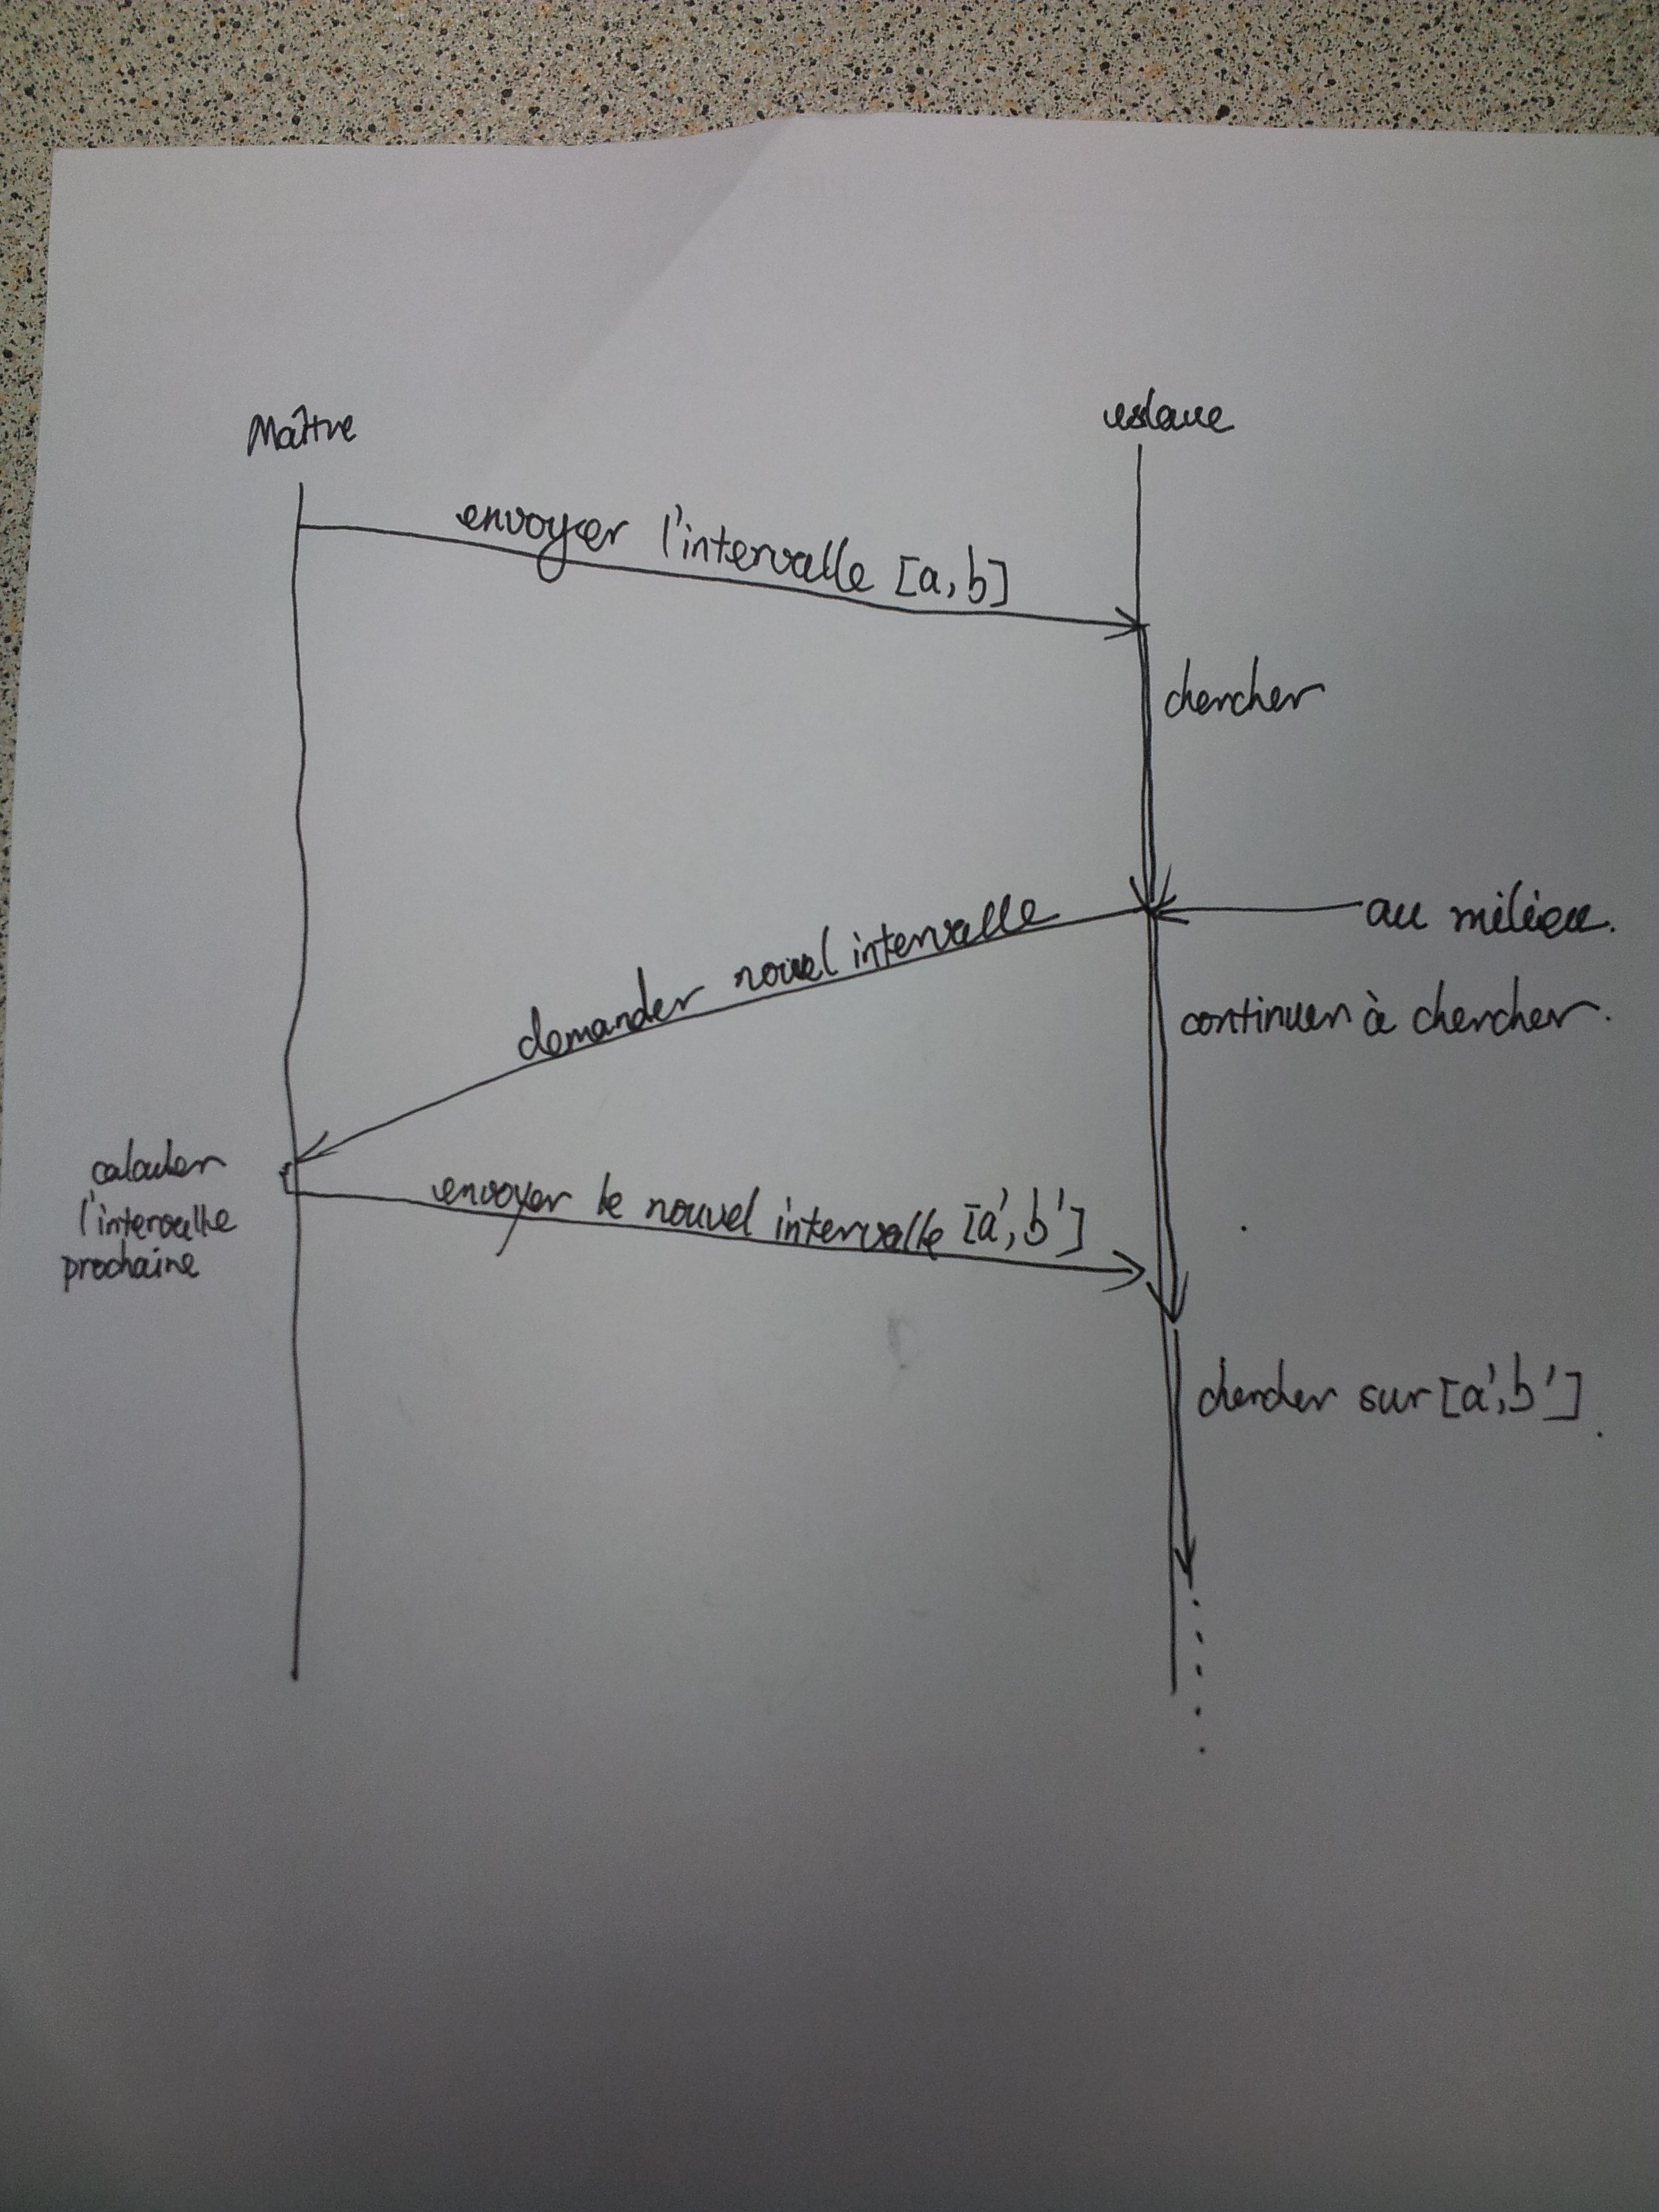 Maître
esclave
envoyer l'intervalle [a, b]
chercher
au milieu.
demander nouvel intervalle
continuer à chercher.
calculer
l'intervalle
prochaine
envoyer le nouvel intervalle [a', b']
chercher sur [a', b'].